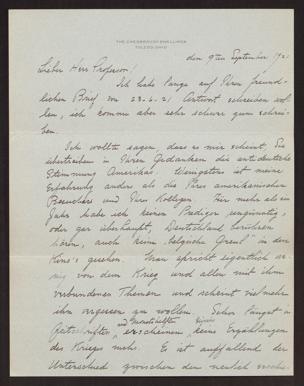 THE CHESBROUGH DWELLINGS
TOLEDO, OHIO
den 9ten September 1921
Lieber Herr Professor!
Ich habe lange auf Ihren freund-
lichen Brief vom 23.6.21 Antwort schreiben wol-
len, ich komme aber sehr schwer zum schrei-
ben.
Ich wollte sagen, dass es mir scheint, Sie
übertreiben in Ihren Gedanken die antideutsche
Stimmung Amerikas. Wenigstens ist meine
Erfahrung anders als die Ihres amerikanischen
Besuchers und Ihres Kollegen. Für mehr als ein
Jahr habe ich keinen Prediger ungünstig,
oder gar überhaupt, Deutschland berühren
hören, auch keine "belgische Greul" in den
Kino's gesehen. Man spricht eigentlich we-
nig von dem Krieg und allen mit ihm
verbundenen Themen und scheint vielmehr
ihn vergessen zu wollen. Schon längst in
Zeitschriften und Monatsheften erscheinen keine Erzählungen
des Krieges mehr. Es ist auffallend der
Unterschied zwischen den neulich